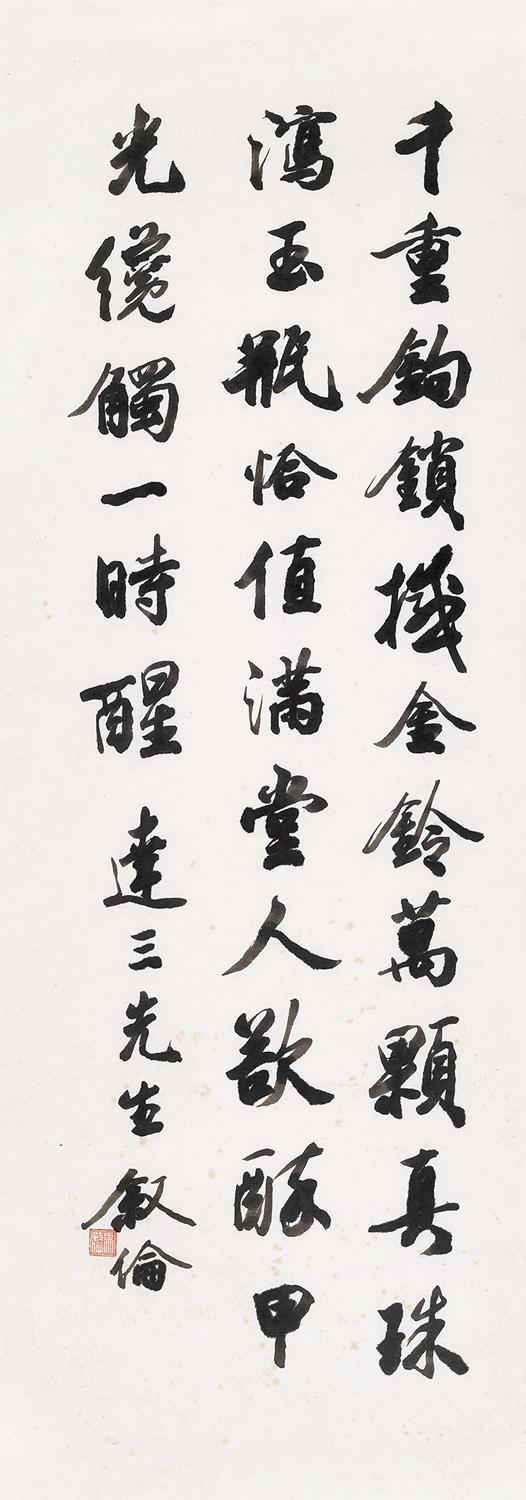 千重鈎鎖撼金鈴萬顆真珠
瀉玉瓶恰值滿堂人欲醉甲
光纔觸一時醒 達三先生 叙倫